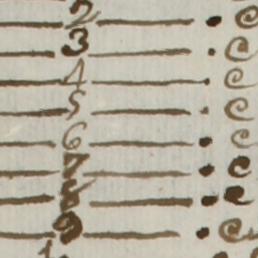 2 @
3 @
4 @
5 @
6 @
7 @
8 @
9 @